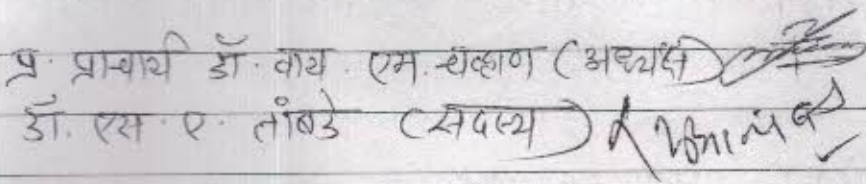 प्र. प्राचार्य डॉ. वाय. एम. चव्हाण (अध्यक्ष)
डॉ. एस. ए. तांबडे (सदस्य)